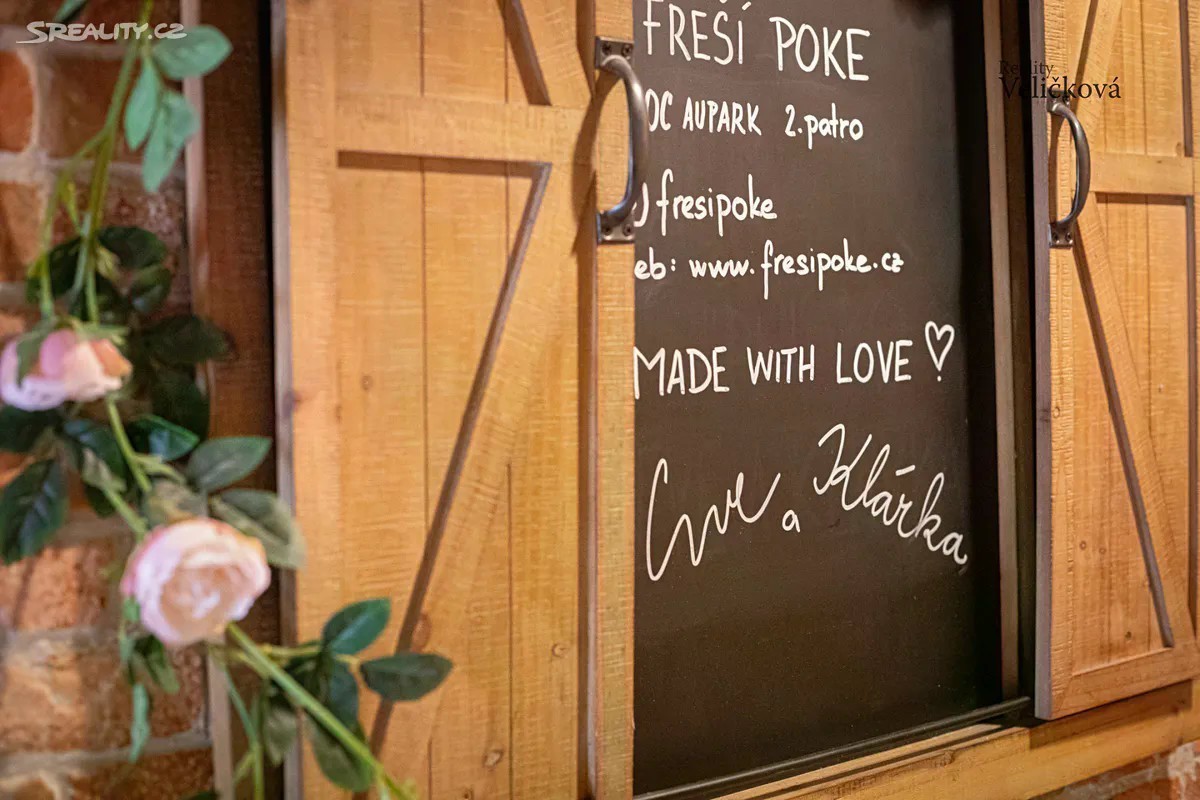 SREALITY.CZ
Reality
Veličková
FREŠÍ POKE
OC AUPARK 2.patro
fresipoke
eb: www.fresipoke.cz
MADE WITH LOVE
a Klárka